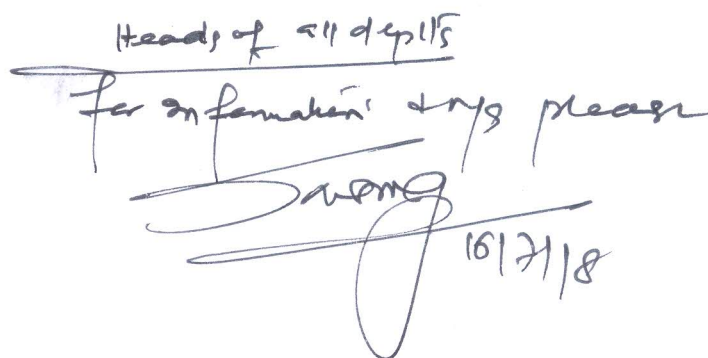 Heads of all deptts
for information & n/a please
16/7/18